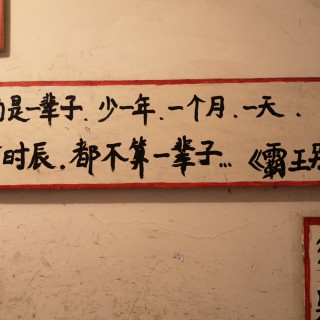 的是一辈子.少一年.一个月.一天.
时辰.都不算一辈子...《霸王别